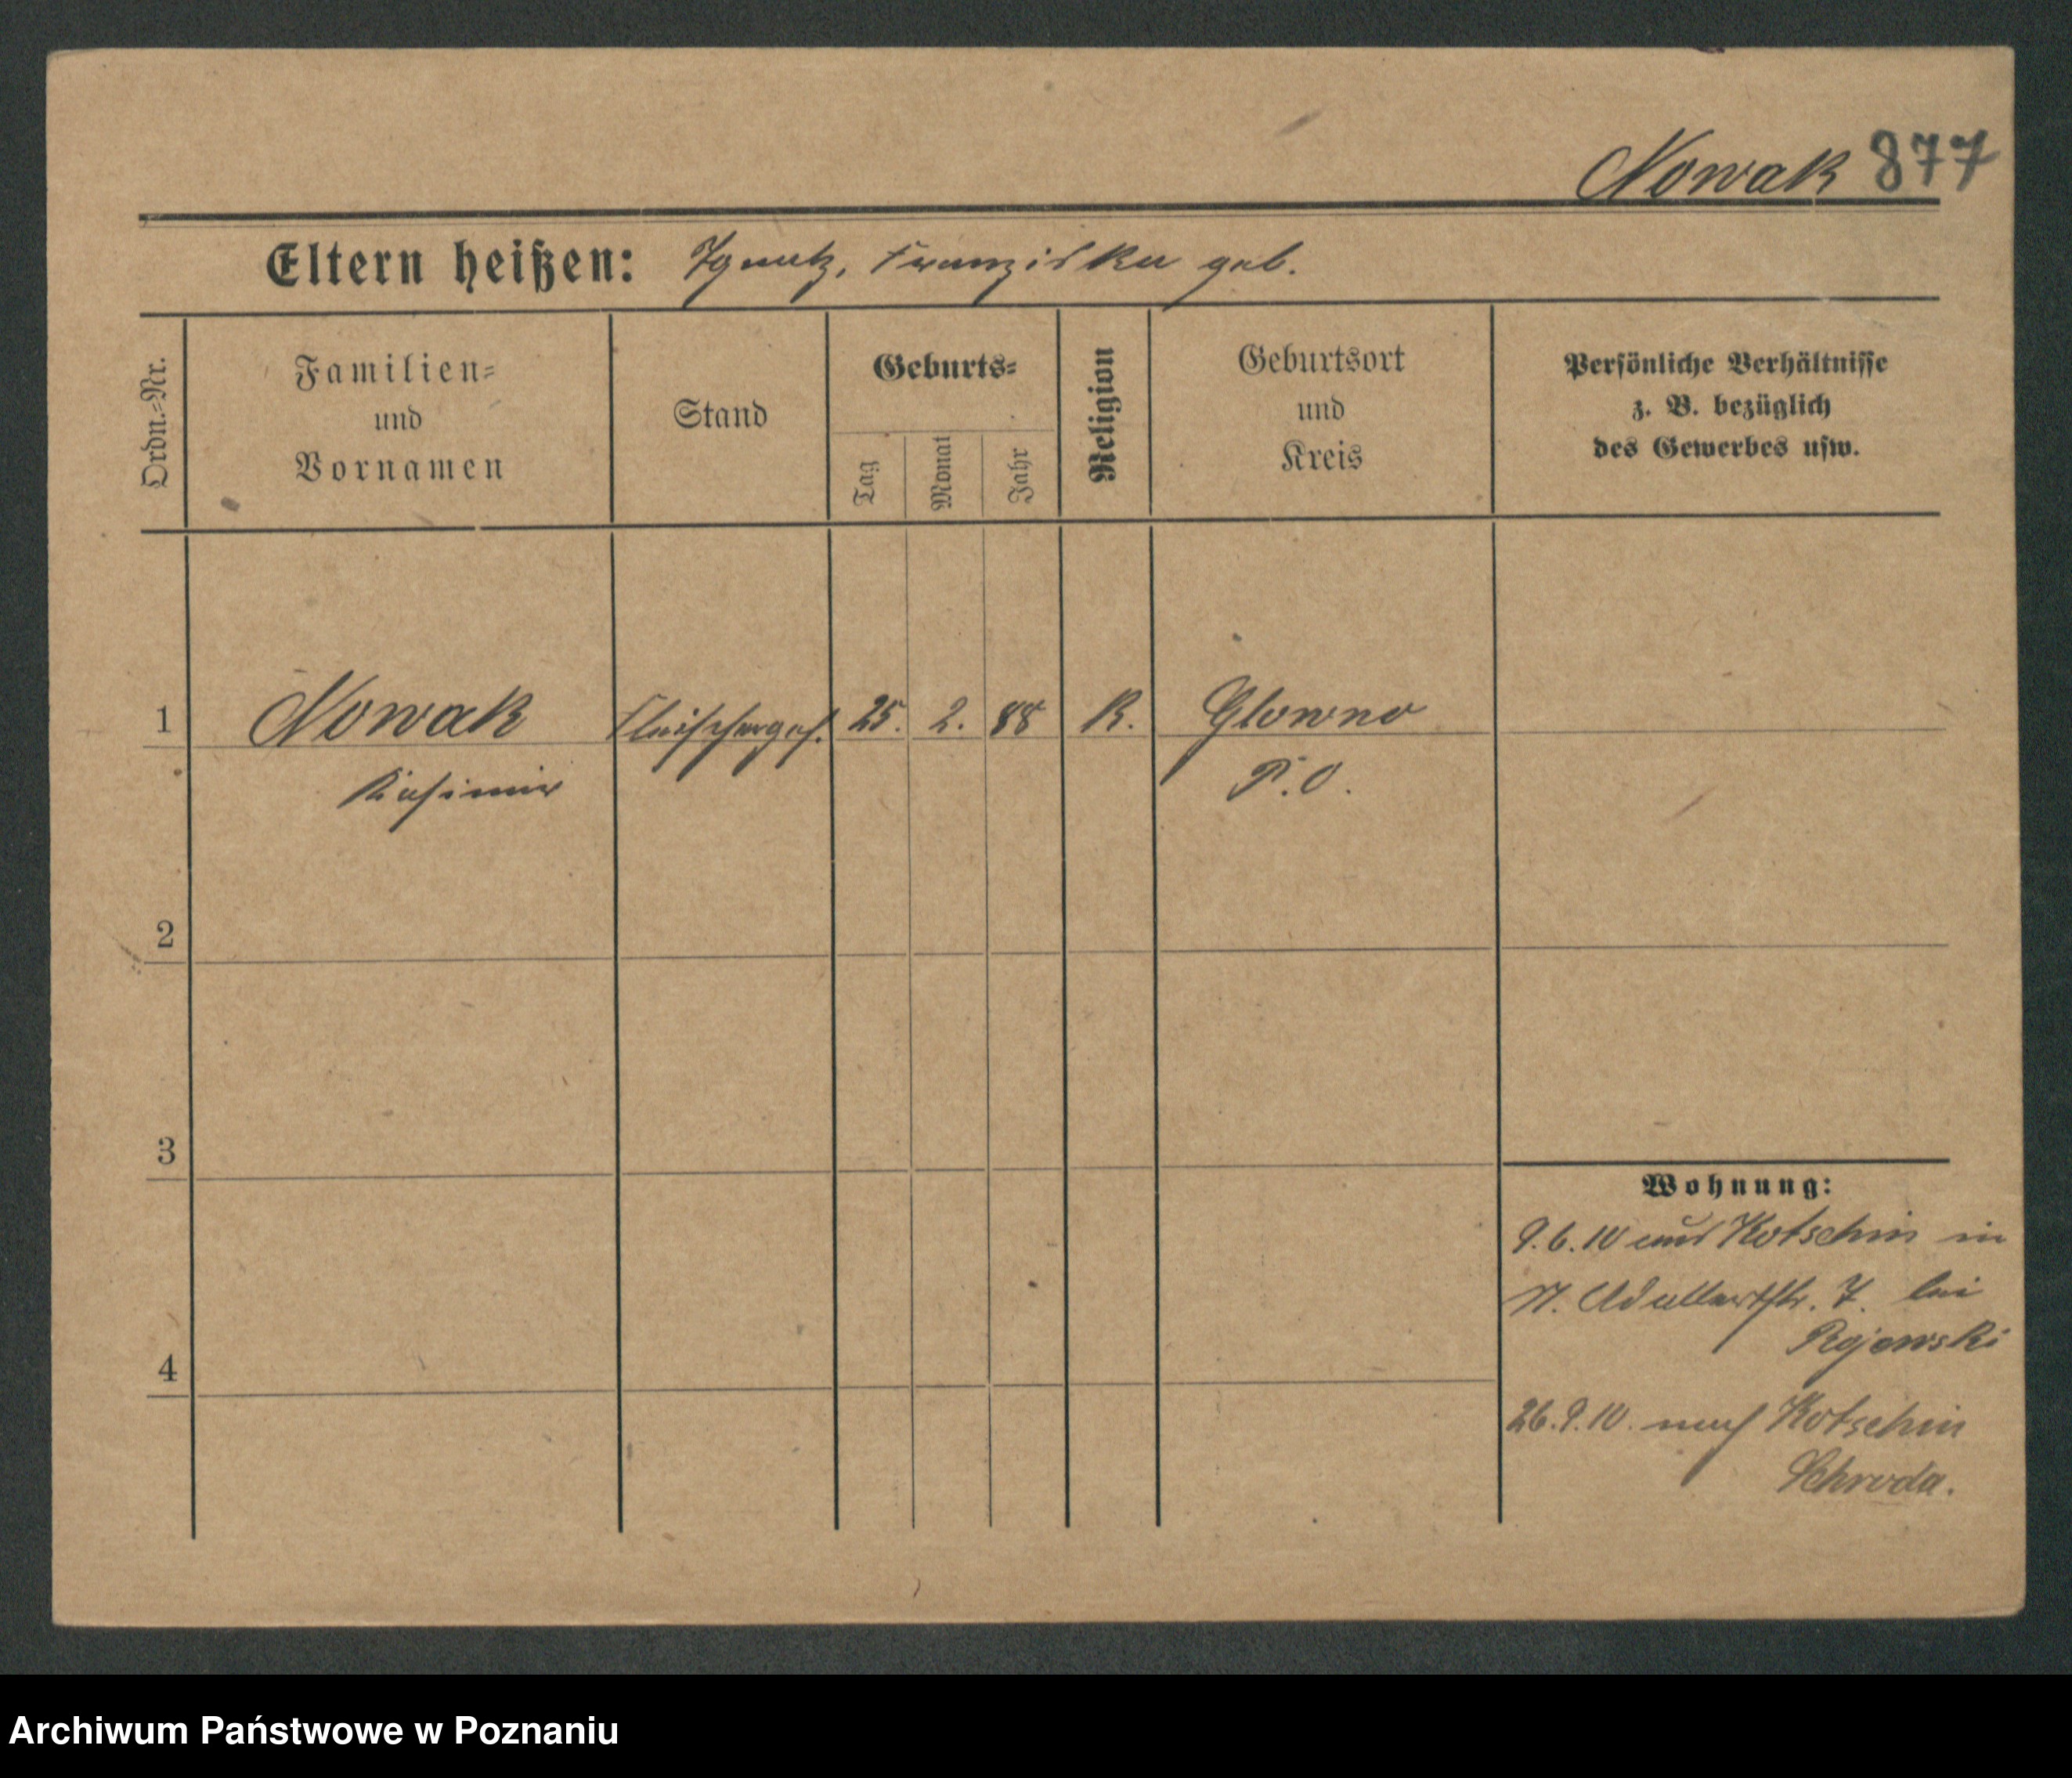 Nowak 877
Eltern heißen: Ignatz, Franziska geb.
Ordn.-Nr.
Familien-
und
Vornamen
Stand
Geburts-
Tag
Monat
Jahr
Religion
Geburtsort
und
Kreis
Persönliche Verhältnisse
z. B. bezüglich
des Gewerbes usw.
1 Nowak Fleischerges. 25. 2. 88 K. Glowno
Kasimir P. O.
2
3
4
Wohnung:
9.6.10 aus Kotschin in
Adalbertstr. 7. bei
Rojewski
26.9.10. nach Kotschin
Schroda.
Archiwum Państwowe w Poznaniu